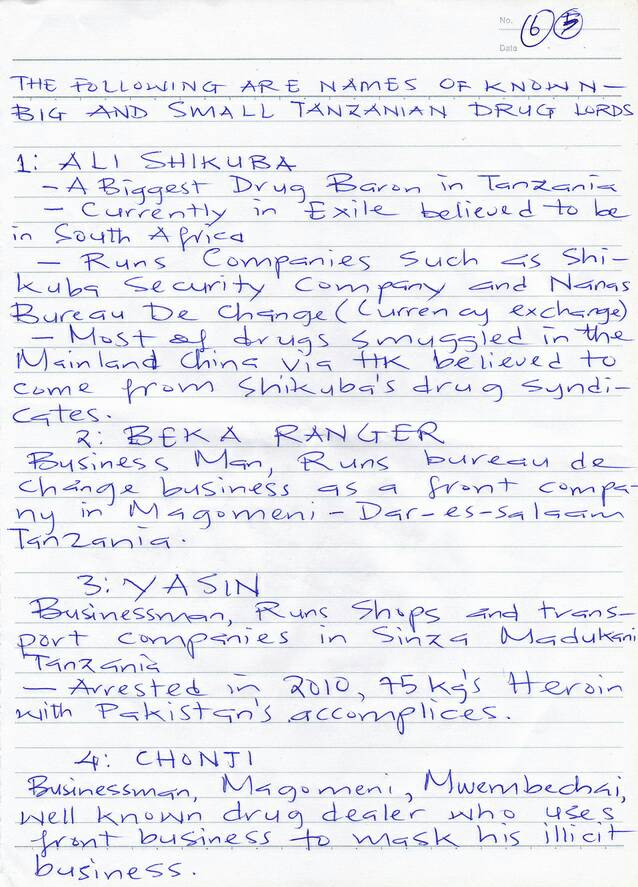 No. 6 5
Date
THE FOLLOWING ARE NAMES OF KNOWN-
BIG AND SMALL TANZANIAN DRUG LORDS
1: ALI SHIKUBA
- A Biggest Drug Baron in Tanzania
- Currently in Exile believed to be
in South Africa
- Runs Companies such as Shi-
kuba Security Company and Nanas
Bureau De Change (Currency exchange)
- Most of drugs smuggled in the
Mainland China via HK believed to
come from Shikuba's drug syndi-
cates.
2: BEKA RANGER
Business Man, Runs bureau de
change business as a front compa-
ny in Magomeni - Dar-es-salaam
Tanzania.
3: YASIN
Businessman, Runs Shops and trans-
port companies in Sinza Madukani
Tanzania
- Arrested in 2010, 75 Kg's Heroin
with Pakistan's accomplices.
4: CHONJI
Businessman, Magomeni, Mwembechai,
well known drug dealer who uses
front business to mask his illicit
business.